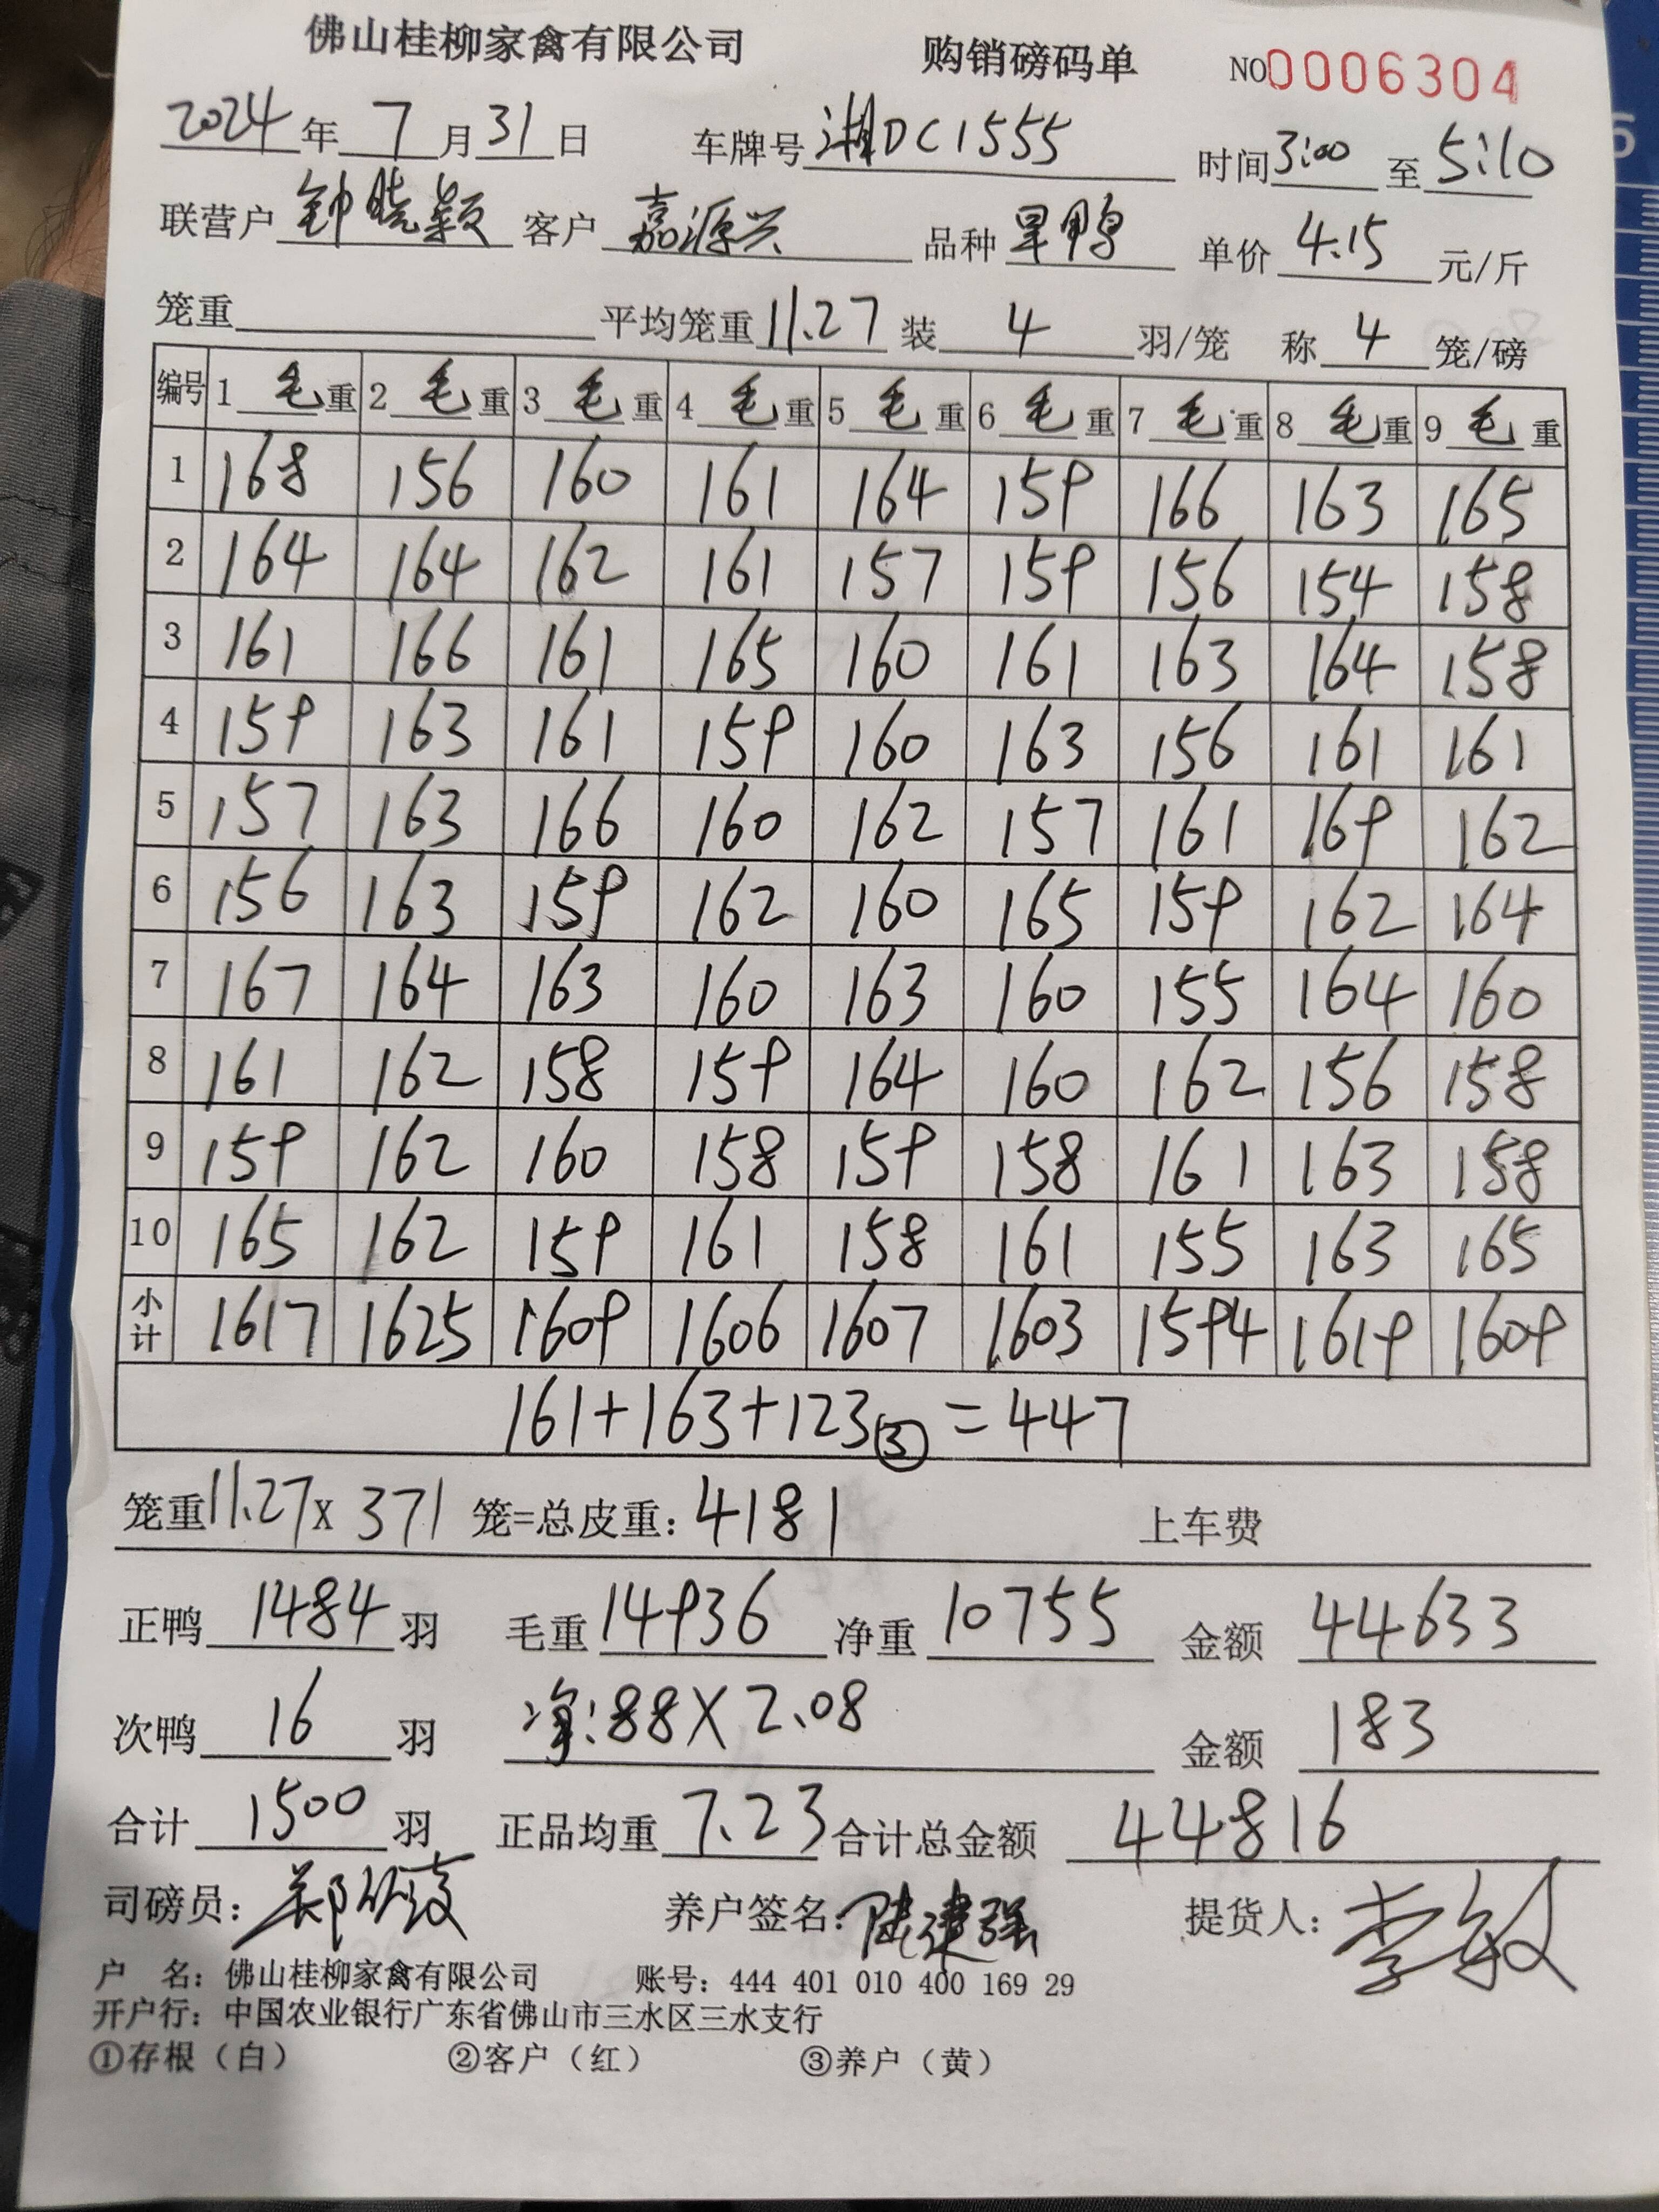 佛山桂柳家禽有限公司 购销磅码单 NO0006304
2024年7月31日 车牌号湘DC1555 时间3:00至5:10
联营户钟晓颖 客户嘉源兴 品种旱鸭 单价4.15元/斤
笼重 平均笼重11.27 装4羽/笼 称4笼/磅
编号 1毛重 2毛重 3毛重 4毛重 5毛重 6毛重 7毛重 8毛重 9毛重
1 168 156 160 161 164 159 166 163 165
2 164 164 162 161 157 159 156 154 158
3 161 166 161 165 160 161 163 164 158
4 159 163 161 159 160 163 156 161 161
5 157 163 166 160 162 157 161 169 162
6 156 163 159 162 160 165 159 162 164
7 167 164 163 160 163 160 155 164 160
8 161 162 158 159 164 160 162 156 158
9 159 162 160 158 159 158 161 163 158
10 165 162 159 161 158 161 155 163 165
小计 1617 1625 1609 1606 1607 1603 1594 1619 1609
161+163+123③=447
笼重11.27x371笼=总皮重:4181 上车费
正鸭1484羽 毛重14936 净重10755 金额44633
次鸭16羽 净:88X2.08 金额183
合计1500羽 正品均重7.23 合计总金额44816
司磅员: 养户签名:陆建强 提货人:李敏
户 名:佛山桂柳家禽有限公司 账号:444 401 010 400 169 29
开户行:中国农业银行广东省佛山市三水区三水支行
①存根(白) ②客户(红) ③养户(黄)